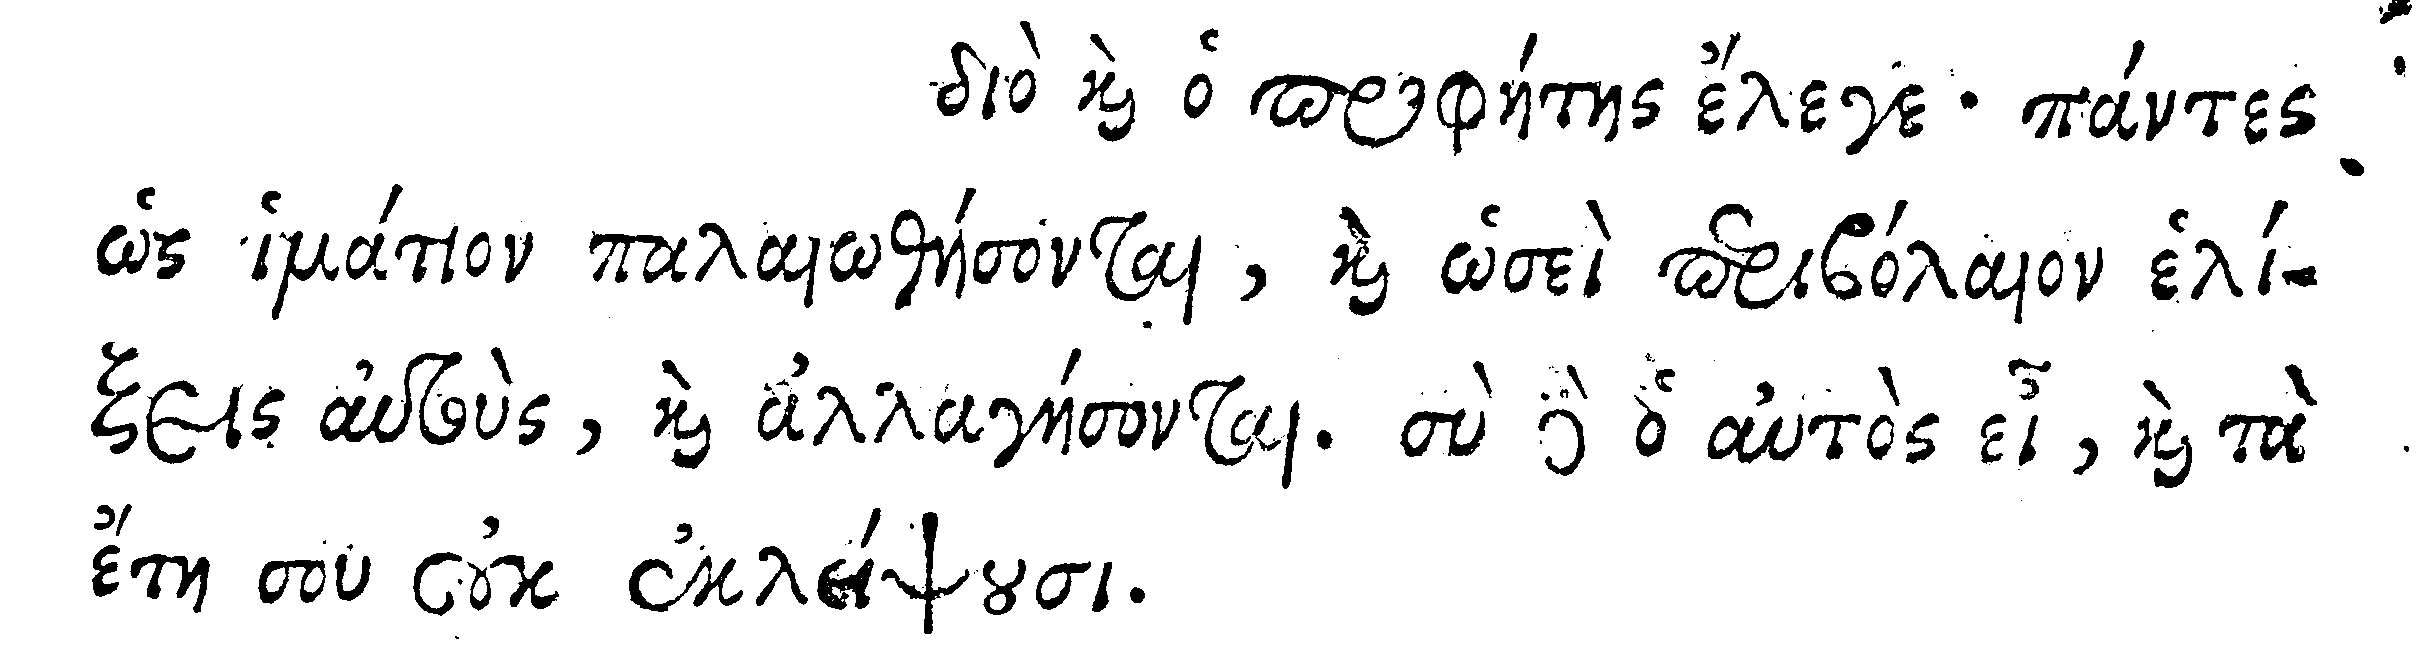 διὸ καὶ ὁ προφήτης ἔλεγε· πάντες
ὡς ἱμάτιον παλαιωθήσονται, καὶ ὡσεὶ περιβόλαιον ἑλί-
ξεις αὐτοὺς, καὶ ἀλλαγήσονται. σὺ δὲ ὁ αὐτὸς εἶ, καὶ τὰ
ἔτη σου οὐκ ἐκλείψουσι.